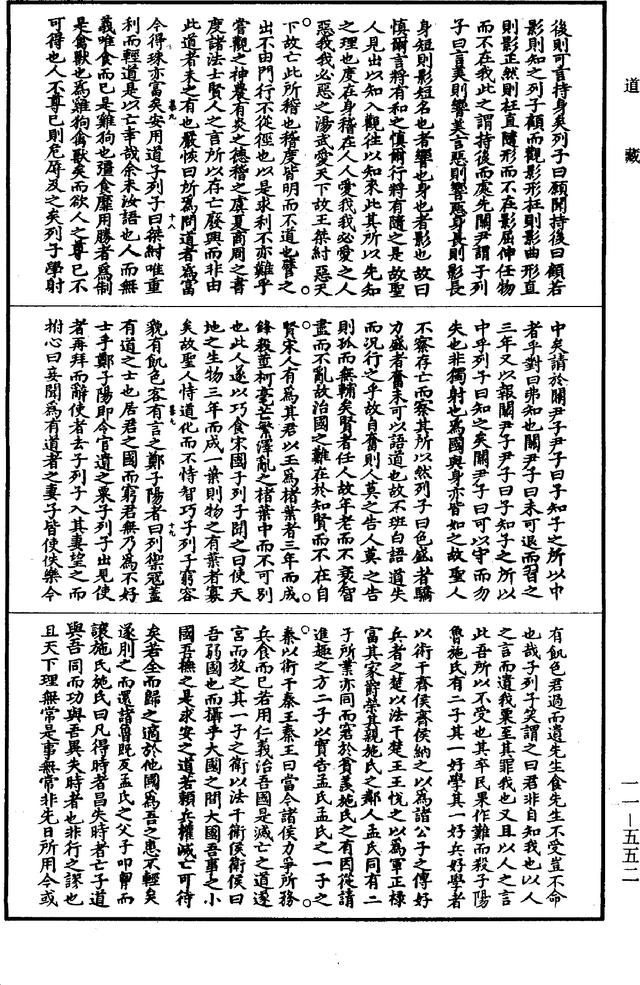 道藏
後則可言持身矣列子曰願聞持後曰顧若
影則知之列子顧而觀影形枉則影曲形直
則影正然則枉直隨形而不在影屈伸任物
而不在我此之謂持後而處先關尹謂子列
子曰言美則響美言惡則響惡身長則影長
身短則影短名也者響也身也者影也故曰
慎爾言將有和之慎爾行將有隨之是故聖
人見出以知入觀往以知來此其所以先知
之理也度在身稽在人人愛我我必愛之人
惡我我必惡之湯武愛天下故王桀紂惡天
下故亡此所稽也稽度皆明而不道也譬之
出不由門行不從徑也以是求利不亦難乎
嘗觀之神農有炎之德稽之虞夏商周之書
度諸法士賢人之言所以存亡廢興而非由
此道者未之有也嚴恢曰所為問道者為富
今得珠亦富矣安用道子列子曰桀紂唯重
利而輕道是以亡幸哉余未汝語也人而無
義唯食而已是雞狗也彊食靡角勝者為制
是禽獸也為雞狗禽獸矣而欲人之尊己不
可得也人不尊己則危辱及之矣列子學射
中矣請於關尹子尹子曰子知子之所以中
者乎對曰弗知也關尹子曰未可退而習之
三年又以報關尹子尹子曰子知子之所以
中乎列子曰知之矣關尹子曰可以守而勿
失也非獨射也為國與身亦皆如之故聖人
不察存亡而察其所以然列子曰色盛者驕
力盛者奮未可以語道也故不班白語道失
而況行之乎故自奮則人莫之告人莫之告
則孤而無輔矣賢者任人故年老而不衰智
盡而不亂故治國之難在於知賢而不在自
賢宋人有為其君以玉為楮葉者三年而成
鋒殺莖柯毫芒繁澤亂之楮葉中而不可別
也此人遂以巧食宋國子列子聞之曰使天
地之生物三年而成一葉則物之有葉者寡
矣故聖人恃道化而不恃智巧子列子窮容
貌有飢色客有言之鄭子陽者曰列禦寇蓋
有道之士也居君之國而窮君無乃為不好
士乎鄭子陽即令官遺之粟子列子出見使
者再拜而辭使者去子列子入其妻望之而
拊心曰妾聞為有道者之妻子皆使佚樂今
有飢色君過而遺先生食先生不受豈不命
也哉子列子笑謂之曰君非自知我也以人
之言而遺我粟至其罪我也又且以人之言
此吾所以不受也其卒民果作難而殺子陽
魯施氏有二子其一好學其一好兵好學者
以術干齊侯齊侯納之以為諸公子之傅好
兵者之楚以法干楚王王悅之以為軍正祿
富其家爵榮其親施氏之鄰人孟氏同有二
子所業亦同而窘於貧羨施氏之有因從請
進趣之方二子以實告孟氏孟氏之一子之
秦以術干秦王秦王曰當今諸侯力爭所務
兵食而已若用仁義治吾國是滅亡之道遂
宮而放之其一子之衛以法干衛侯衛侯曰
吾弱國也而攝乎大國之間大國吾事之小
國吾撫之是求安之道若賴兵權滅亡可待
矣若全而歸之適於他國為吾之患不輕矣
遂刖之而還諸魯既反孟氏之父子叩胷而
讓施氏施氏曰凡得時者昌失時者亡子道
與吾同而功與吾異失時者也非行之謬也
且天下理無常是事無常非先日所用今或
一一—五五二